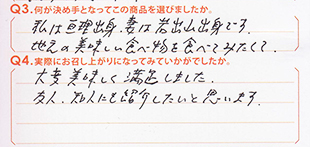 Q3.何が決め手となってこの商品を選びましたか。
私は亘理出身、妻は岩出山出身です。
地元の美味しい食べ物を食べてみたくて。
Q4.実際にお召し上がりになってみていかがでしたか。
大変美味しく満足しました。
友人、知人にも紹介したいと思います。